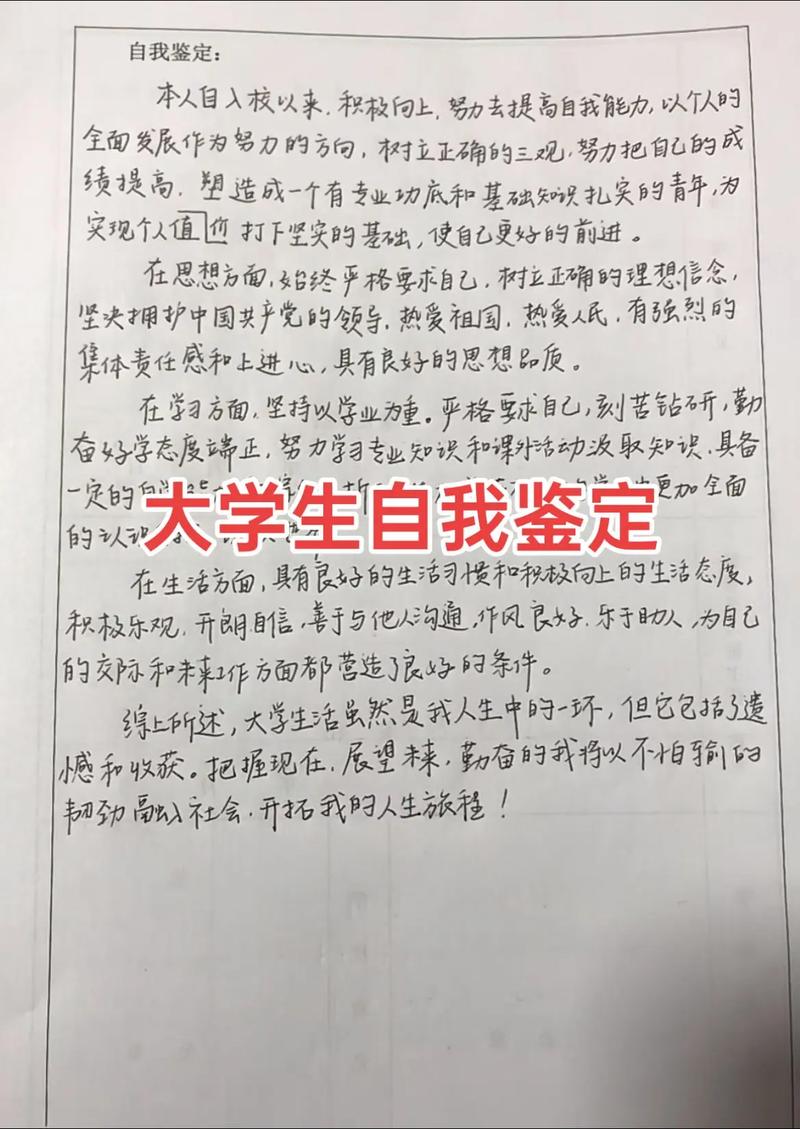 自我鉴定:
本人自入校以来,积极向上,努力去提高自我能力,以个人的
全面发展作为努力的方向,树立正确的三观,努力把自己的成
绩提高,塑造成一个有专业功底和基础知识扎实的青年,为
实现个人值价打下坚实的基础,使自己更好的前进。
在思想方面,始终严格要求自己,树立正确的理想信念,
坚决拥护中国共产党的领导,热爱祖国,热爱人民,有强烈的
集体责任感和上进心,具有良好的思想品质。
在学习方面,坚持以学业为重。严格要求自己,刻苦钻研,勤
奋好学态度端正,努力学习专业知识和课外活动汲取知识,具备
一定的自 更加全面
的认识
大学生自我鉴定
在生活方面,具有良好的生活习惯和积极向上的生活态度,
积极乐观,开朗自信,善于与他人沟通,作风良好,乐于助人,为自己
的交际和未来工作方面都营造了良好的条件。
综上所述,大学生活虽然是我人生中的一环,但它包括了遗
憾和收获。把握现在,展望未来,勤奋的我将以不怕输的
韧劲融入社会,开拓我的人生旅程!